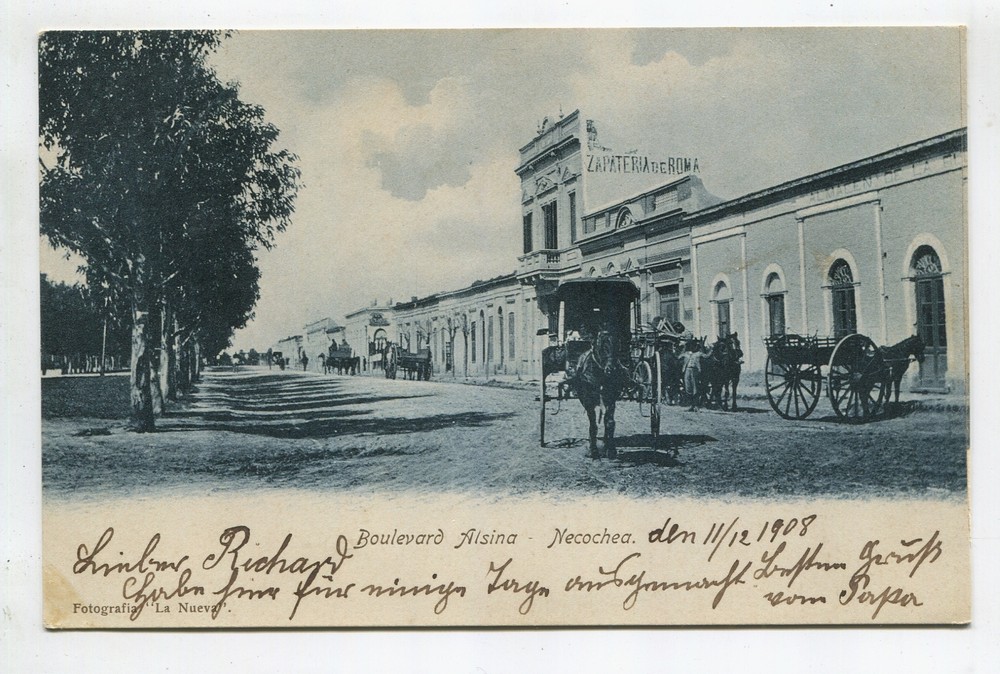 ZAPATERIA DE ROMA
Boulevard Alsina - Necochea.
den 11/12 1908
Lieber Richard
Habe hier für einige Tage ausgemacht Besten Gruß
vom Papa
Fotografia "La Nueva".